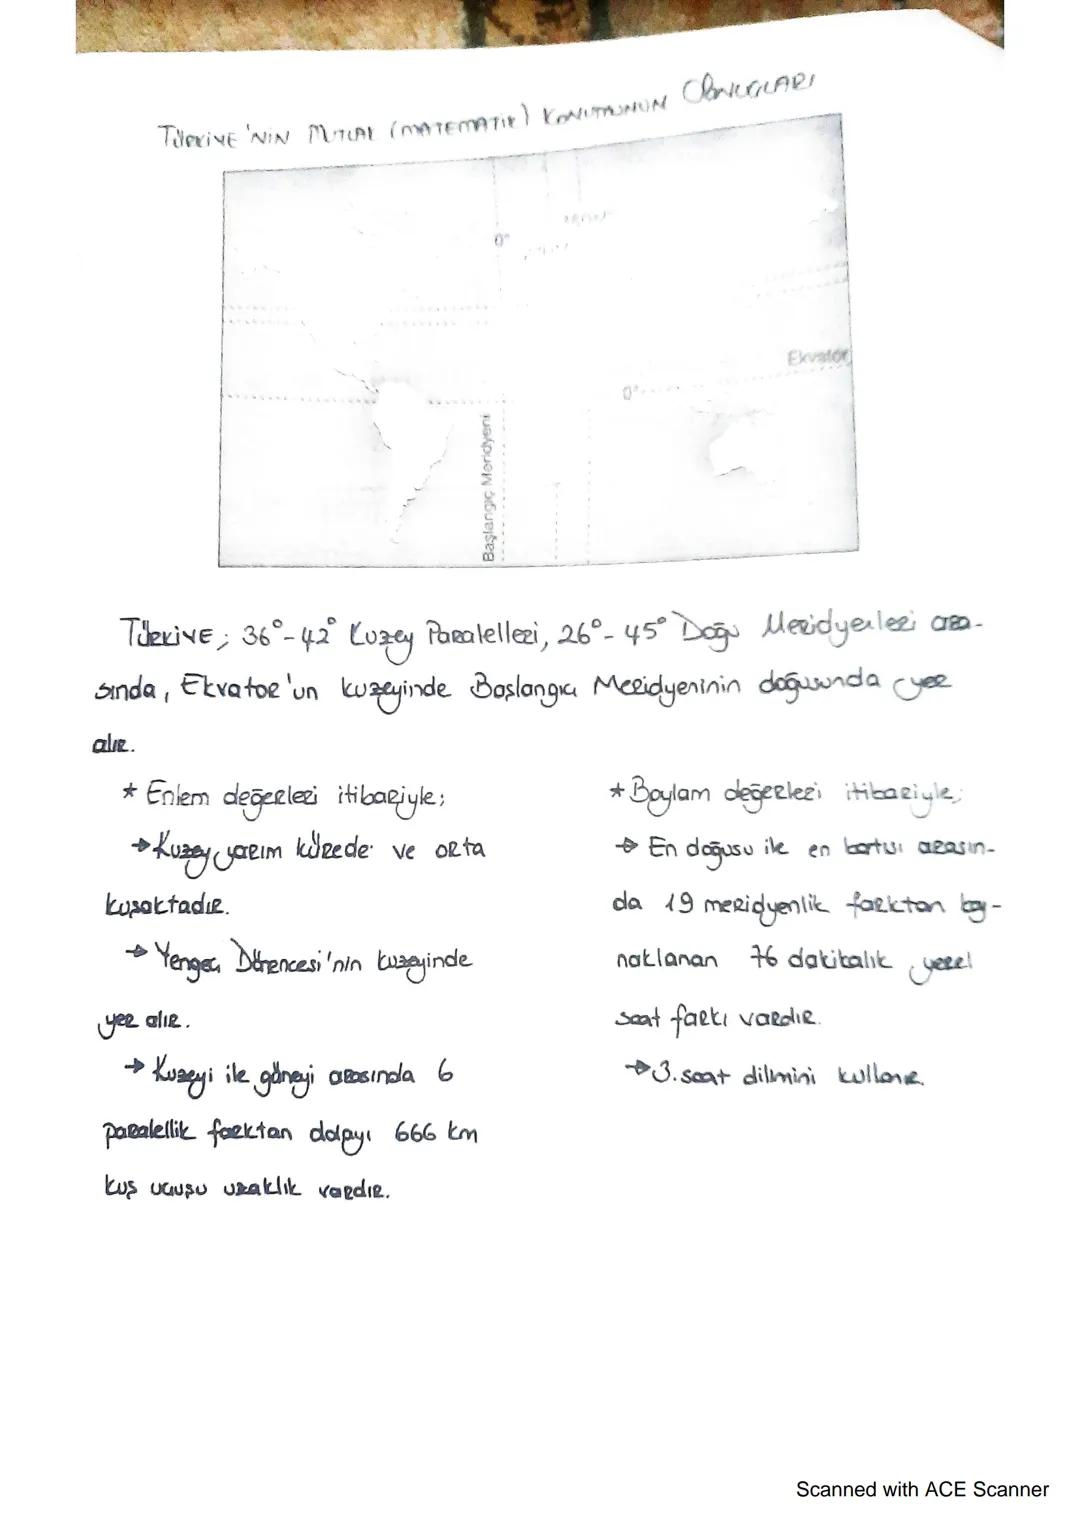 TÜRKİYE'NİN MUTLAK (MATEMATİK) KONUMUNUN SONUÇLARI
0°
Ekvator
0°
Başlangıç Meridyeni
TÜRKİYE; 36°-42° Kuzey Paralelleri, 26°-45° Doğu Meridyenleri ara-
sında, Ekvator'un kuzeyinde Başlangıç Meridyeninin doğusunda yer
alır.
* Enlem değerleri itibariyle;
→ Kuzey yarım kürede ve orta
kuşaktadır.
→ Yengeç Dönencesi'nin kuzeyinde
yer alır.
→ Kuzeyi ile güneyi arasında 6
paralellik farktan dolayı 666 km
kuş uçuşu uzaklık vardır.
* Boylam değerleri itibariyle;
→ En doğusu ile en batısı arasın-
da 19 meridyenlik farktan kay-
naklanan 76 dakikalık yerel
saat farkı vardır.
→ 3. saat dilimini kullanır.
Scanned with ACE Scanner